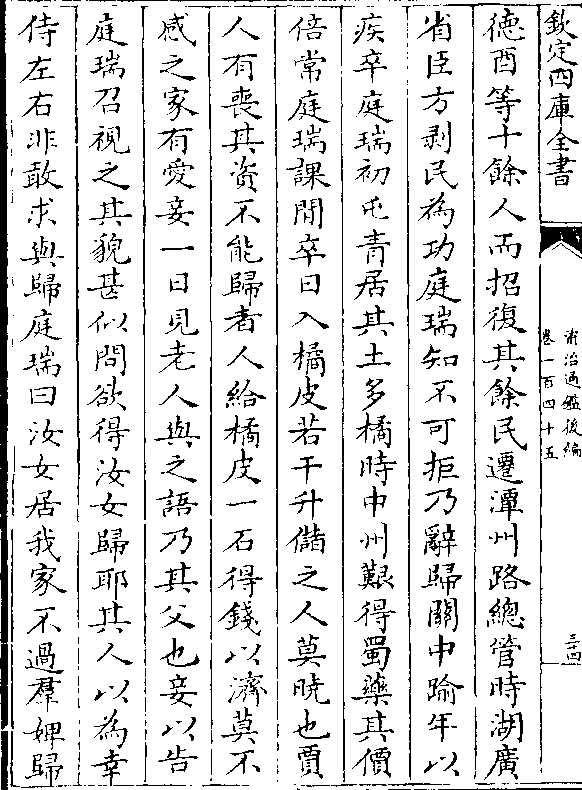 欽定四庫全書
資治通鑑後編
卷一百四十五
三十四
德酉等十餘人而招復其餘民遷潭州路總管時湖廣
省臣方剥民為功庭瑞知不可拒乃辭歸關中踰年以
疾卒庭瑞初屯青居其土多橘時中州艱得蜀藥其價
倍常庭瑞課閒卒日入橘皮若干升儲之人莫曉也賈
人有喪其資不能歸者人給橘皮一石得錢以濟莫不
感之家有愛妾一日見老人與之語乃其父也妾以告
庭瑞召視之其貌甚似問欲得汝女歸耶其人以為幸
侍左右非敢求與歸庭瑞曰汝女居我家不過羣婢歸